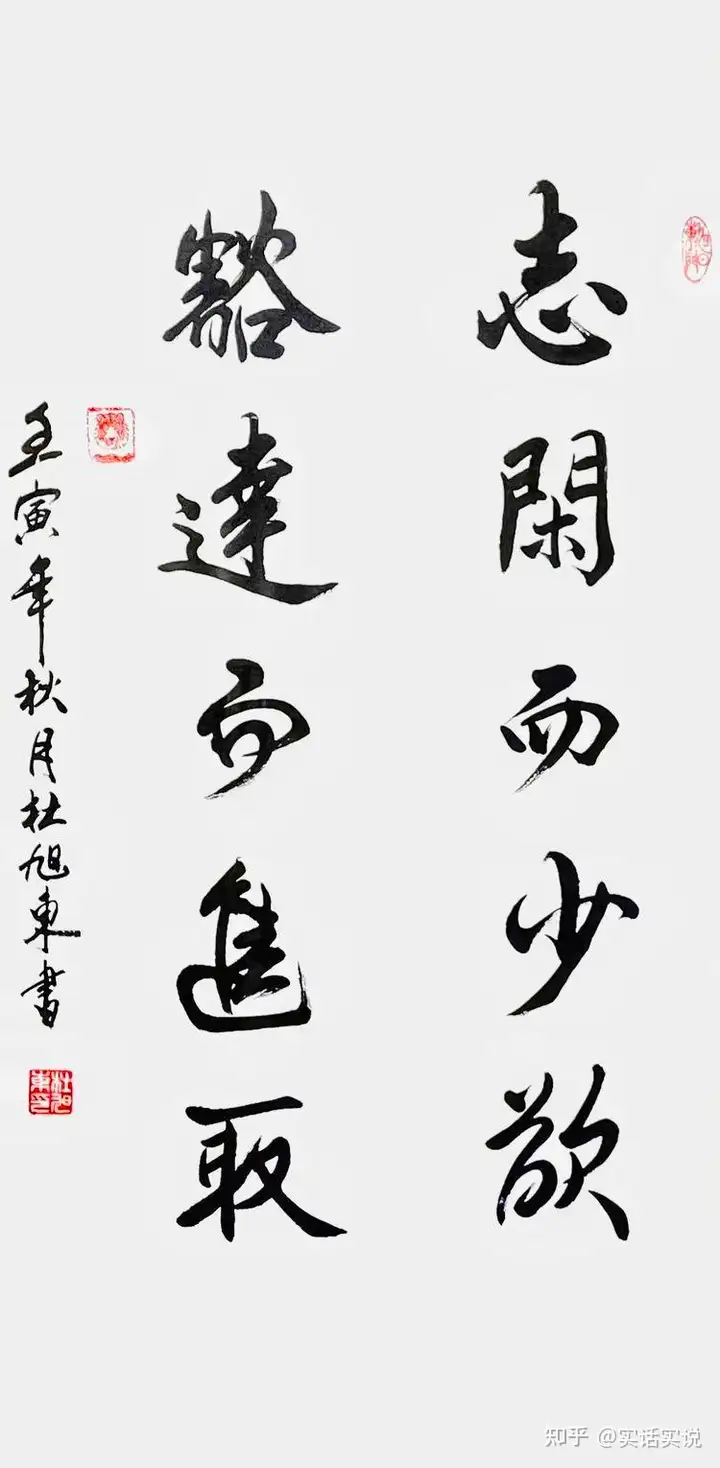 志閑而少欲
豁達而進取
壬寅年秋月杜旭東書
杜旭東印
知乎 @实话实说